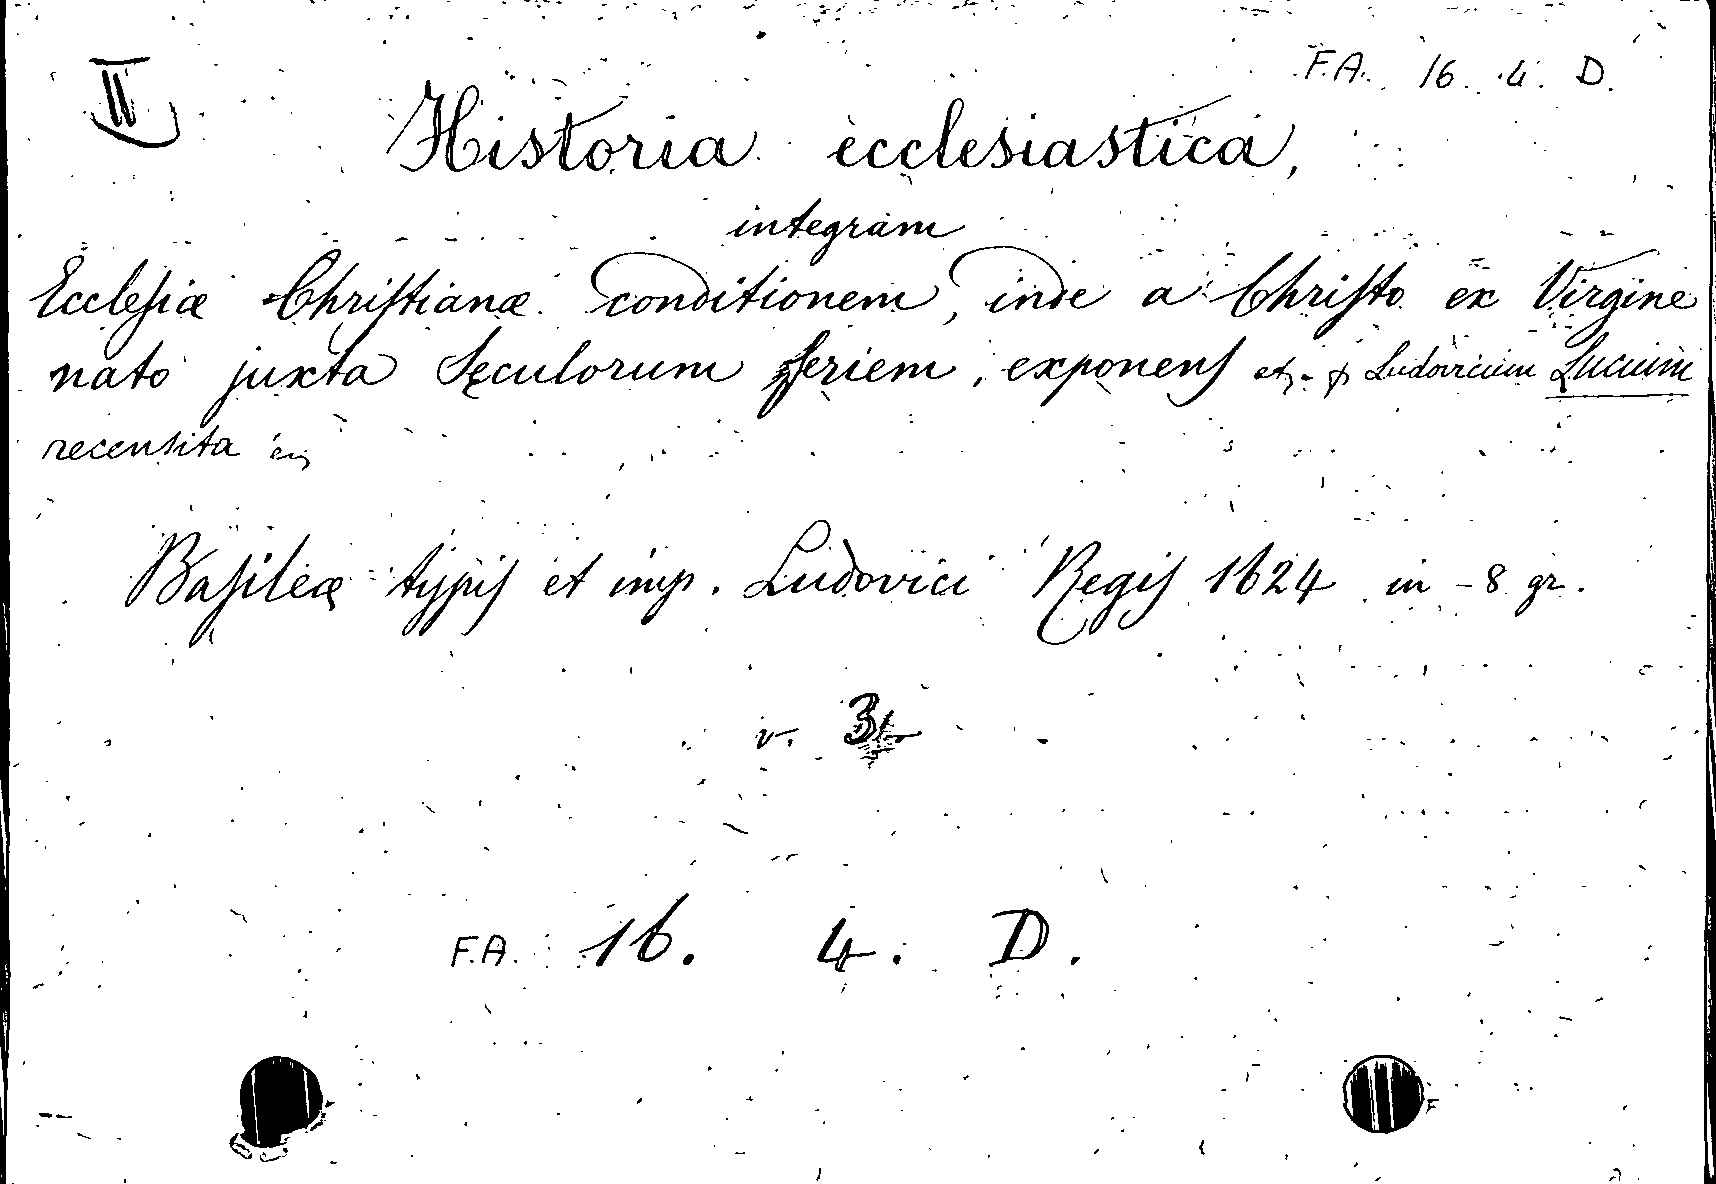 II
F.A. 16. 4. D.
Historia ecclesiastica,
integram
Ecclesiæ Christianæ conditionem, inde a Christo ex Virgine
nato juxta Sęculorum seriem, exponens etc. p Ludovicum Lucium
recensita
Basileæ typis et imp. Ludovici Regis 1624 in-8 gr.
v. 3
F.A. 16. 4. D.